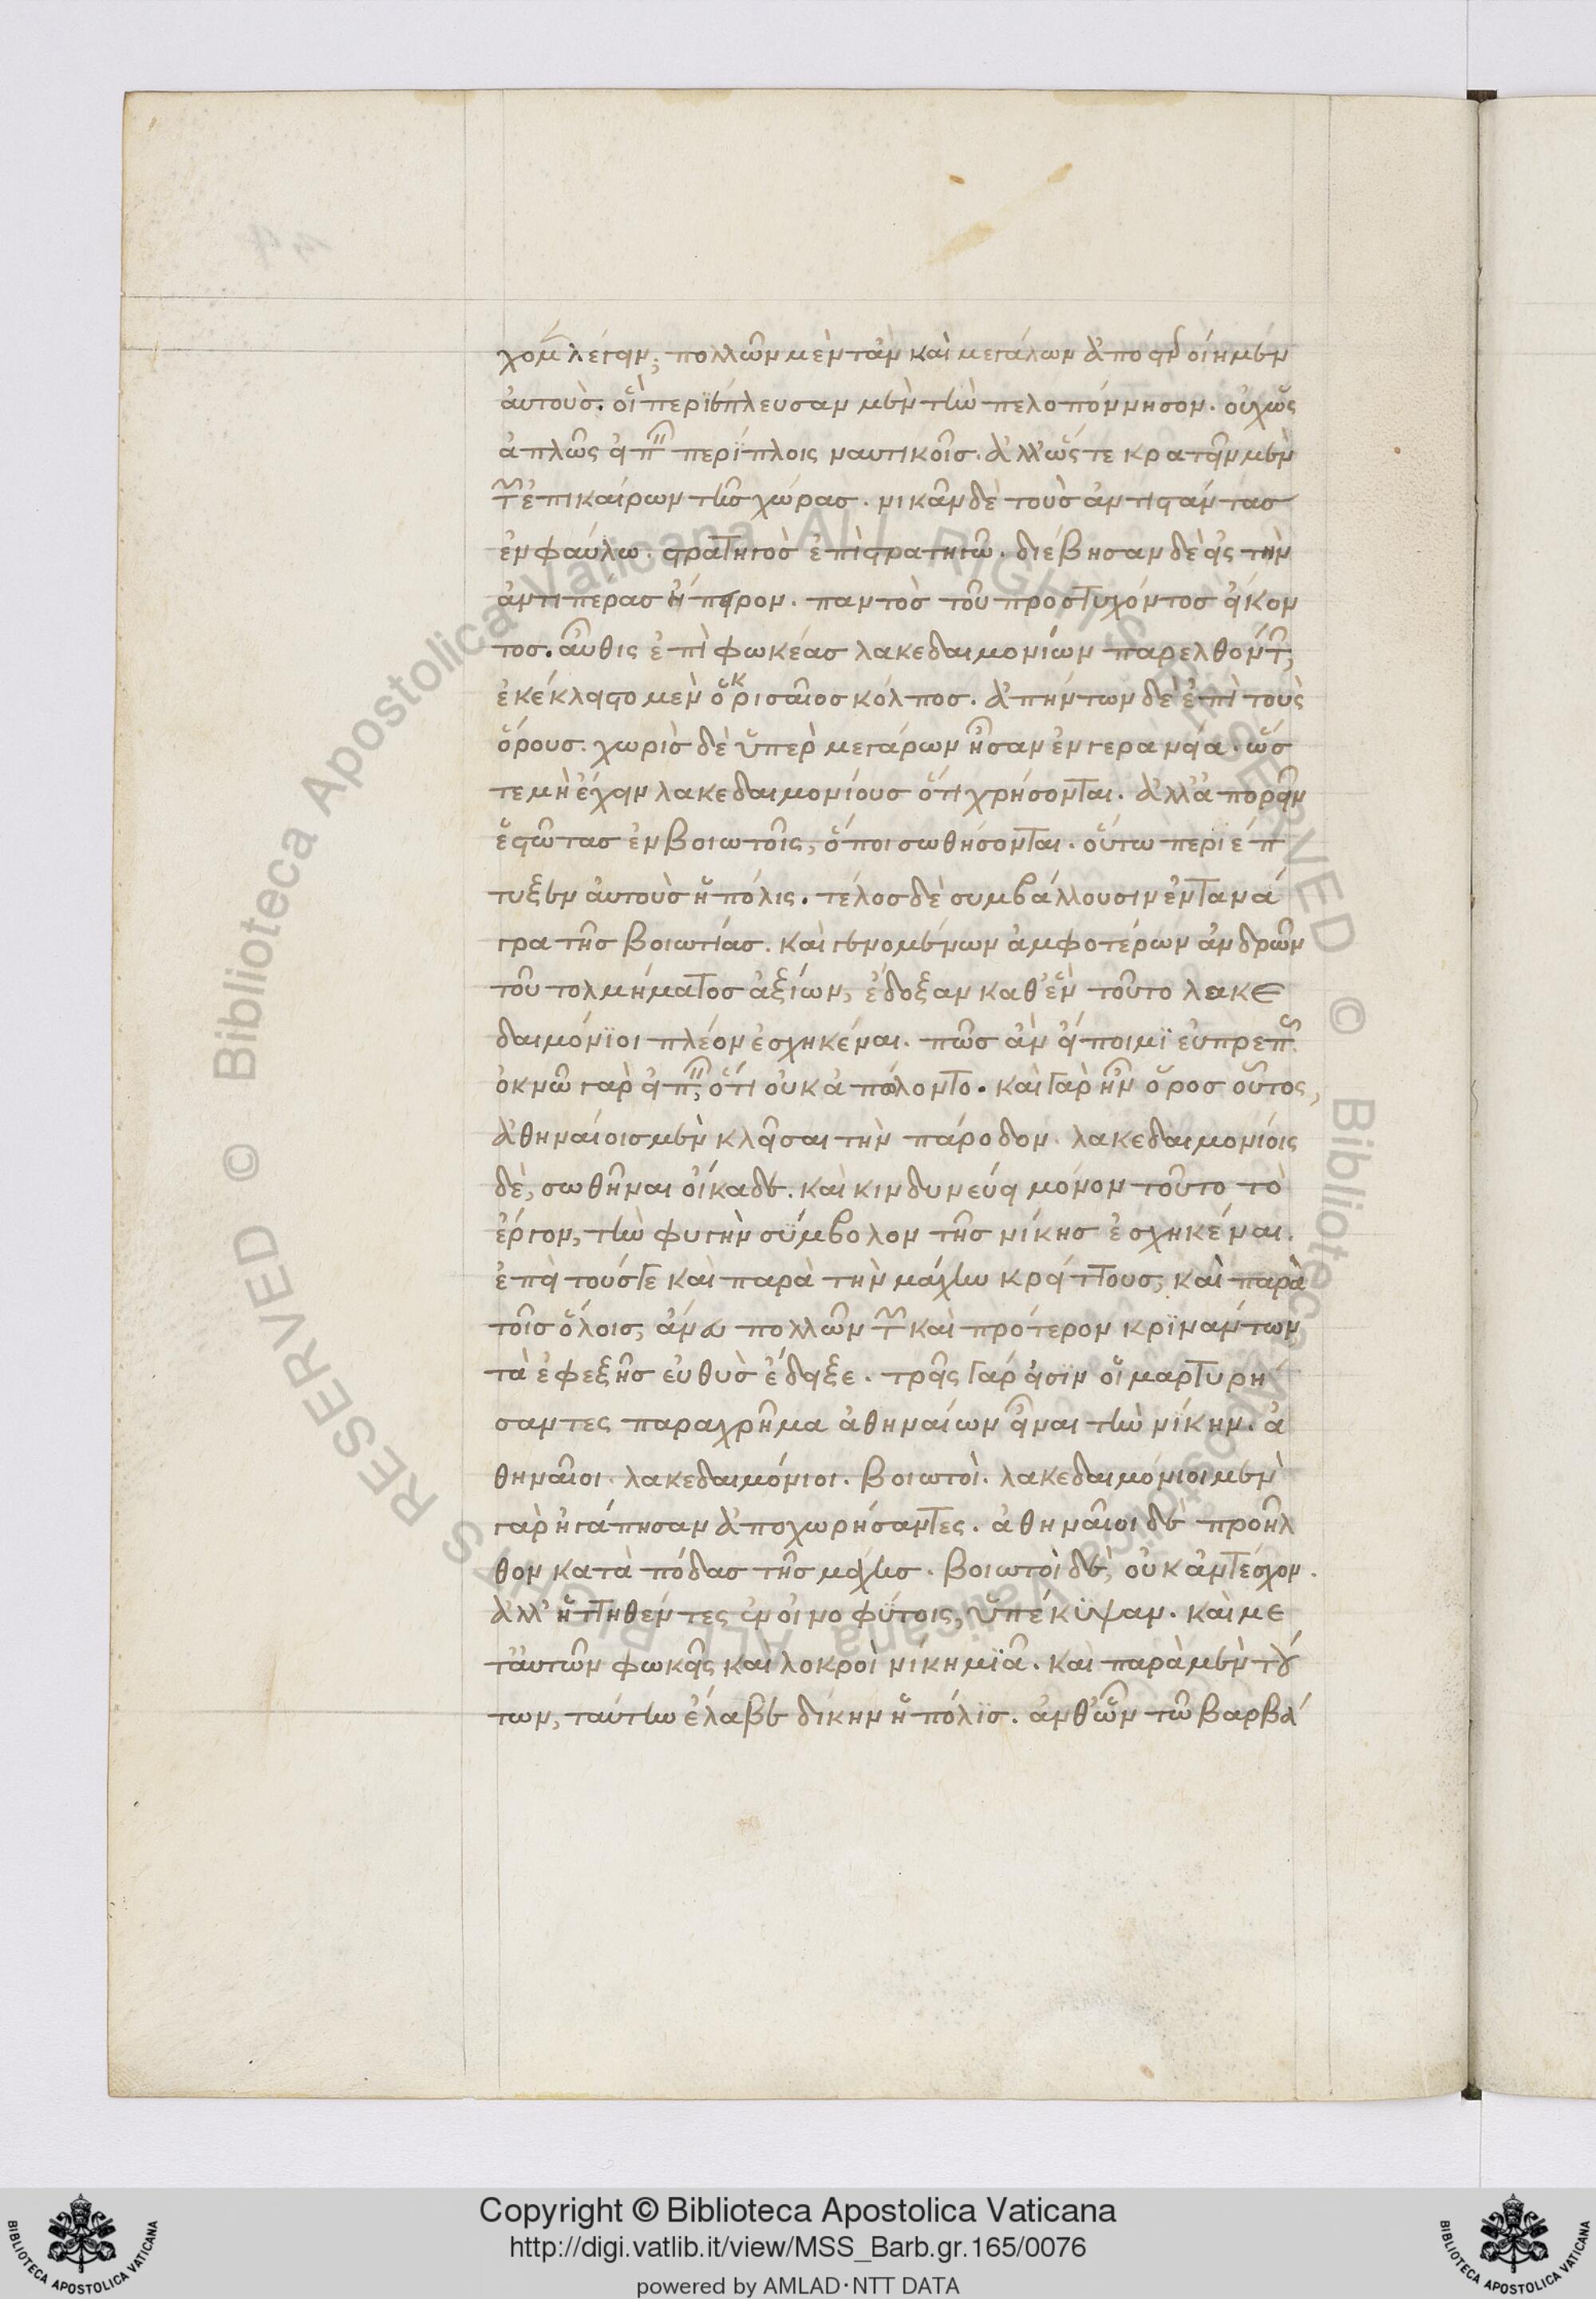 χομ λέγειν; πολλῶν μὲν τἂν καὶ μεγάλων ἀποστεροίημεν
αὐτοὺς. οἳ περιέπλευσαν μὲν τὴν πελοπόννησον. οὐχ ὡς
ἁπλῶς εἰπεῖν περίπλοις ναυτικοῖς. ἀλλ' ὥστε κρατεῖν μὲν
τῶν ἐπικαίρων τῆς χώρας. νικᾶν δὲ τοὺς ἀντιστάντας
ἐν φαύλω. στρατηγὸς ἐπὶ στρατηγῶ. διέβησαν δὲ εἰς τὴν
ἀντιπέρας ἤπειρον. παντὸς τοῦ προστυχόντος εἴκον
τος. αὖθις ἐπὶ φωκέας λακεδαιμονίων παρελθόντων,
ἐκέκλειστο μὲν ὁ κρισαῖος κόλπος. ἀπήντων δὲ ἐπὶ τοὺς
ὅρους. χωρὶς δὲ ὑπὲρ μεγάρων ἦσαν ἐν γερανεία. ὥσ
τε μὴ ἔχειν λακεδαιμονίους ὅτι χρήσονται. ἀλλ' ἀπορεῖν
ἑστῶτας ἐν βοιωτοῖς, ὅποι σωθήσονται. οὕτω περιέπ
τυξεν αὐτοὺς ἡ πόλις. τέλος δὲ συμβάλλουσιν ἐν τανά
γρα τῆς βοιωτίας. καὶ γενομένων ἀμφοτέρων ἀνδρῶν
τοῦ τολμήματος ἀξίων, ἔδοξαν καθ' ἓν τοῦτο λακε
δαιμόνιοι πλέον ἐσχηκέναι. πῶς ἂν εἴποιμι εὐπρεπῶς.
ὀκνῶ γὰρ εἰπεῖν, ὅτι οὐκ ἀπώλοντο. καὶ γὰρ ἦν ὅρος οὗτος,
ἀθηναίοις μὲν κλεῖσαι τὴν πάροδον. λακεδαιμονίοις
δὲ, σωθῆναι οἴκαδε. καὶ κινδυνεύει μόνον τοῦτο τὸ
ἔργον, τὴν φυγὴν σύμβολον τῆς νίκης ἐσχηκέναι.
ἐπεὶ τούς γε καὶ παρὰ τὴν μάχην κρείττους, καὶ παρὰ
τοῖς ὅλοις, ἄνω πολλῶν τῶν καὶ πρότερον κρινάντων
τὰ ἐφεξῆς εὐθὺς ἔδειξε. τρεῖς γάρ εἰσιν οἱ μαρτυρή
σαντες παραχρῆμα ἀθηναίων εἶναι τὴν νίκην. ἀ
θηναῖοι. λακεδαιμόνιοι. βοιωτοὶ. λακεδαιμόνιοι μὲν
γὰρ ἠγάπησαν ἀποχωρήσαντες. ἀθηναῖοι δὲ προῆλ
θον κατὰ πόδας τῆς μάχης. βοιωτοὶ δὲ, οὐκ ἀντέσχον.
ἀλλ' ἡττηθέντες ἐν οἰνοφύτοις, ὑπέκυψαν. καὶ με
τ' αὐτῶν φωκεῖς καὶ λοκροὶ νίκη μιᾶ. καὶ παρὰ μὲν τού
των, ταύτην ἔλαβε δίκην ἡ πόλις. ἀνθ' ὧν τῶ βαρβά

Copyright © Biblioteca Apostolica Vaticana
http://digi.vatlib.it/view/MSS_Barb.gr.165/0076
powered by AMLAD·NTT DATA